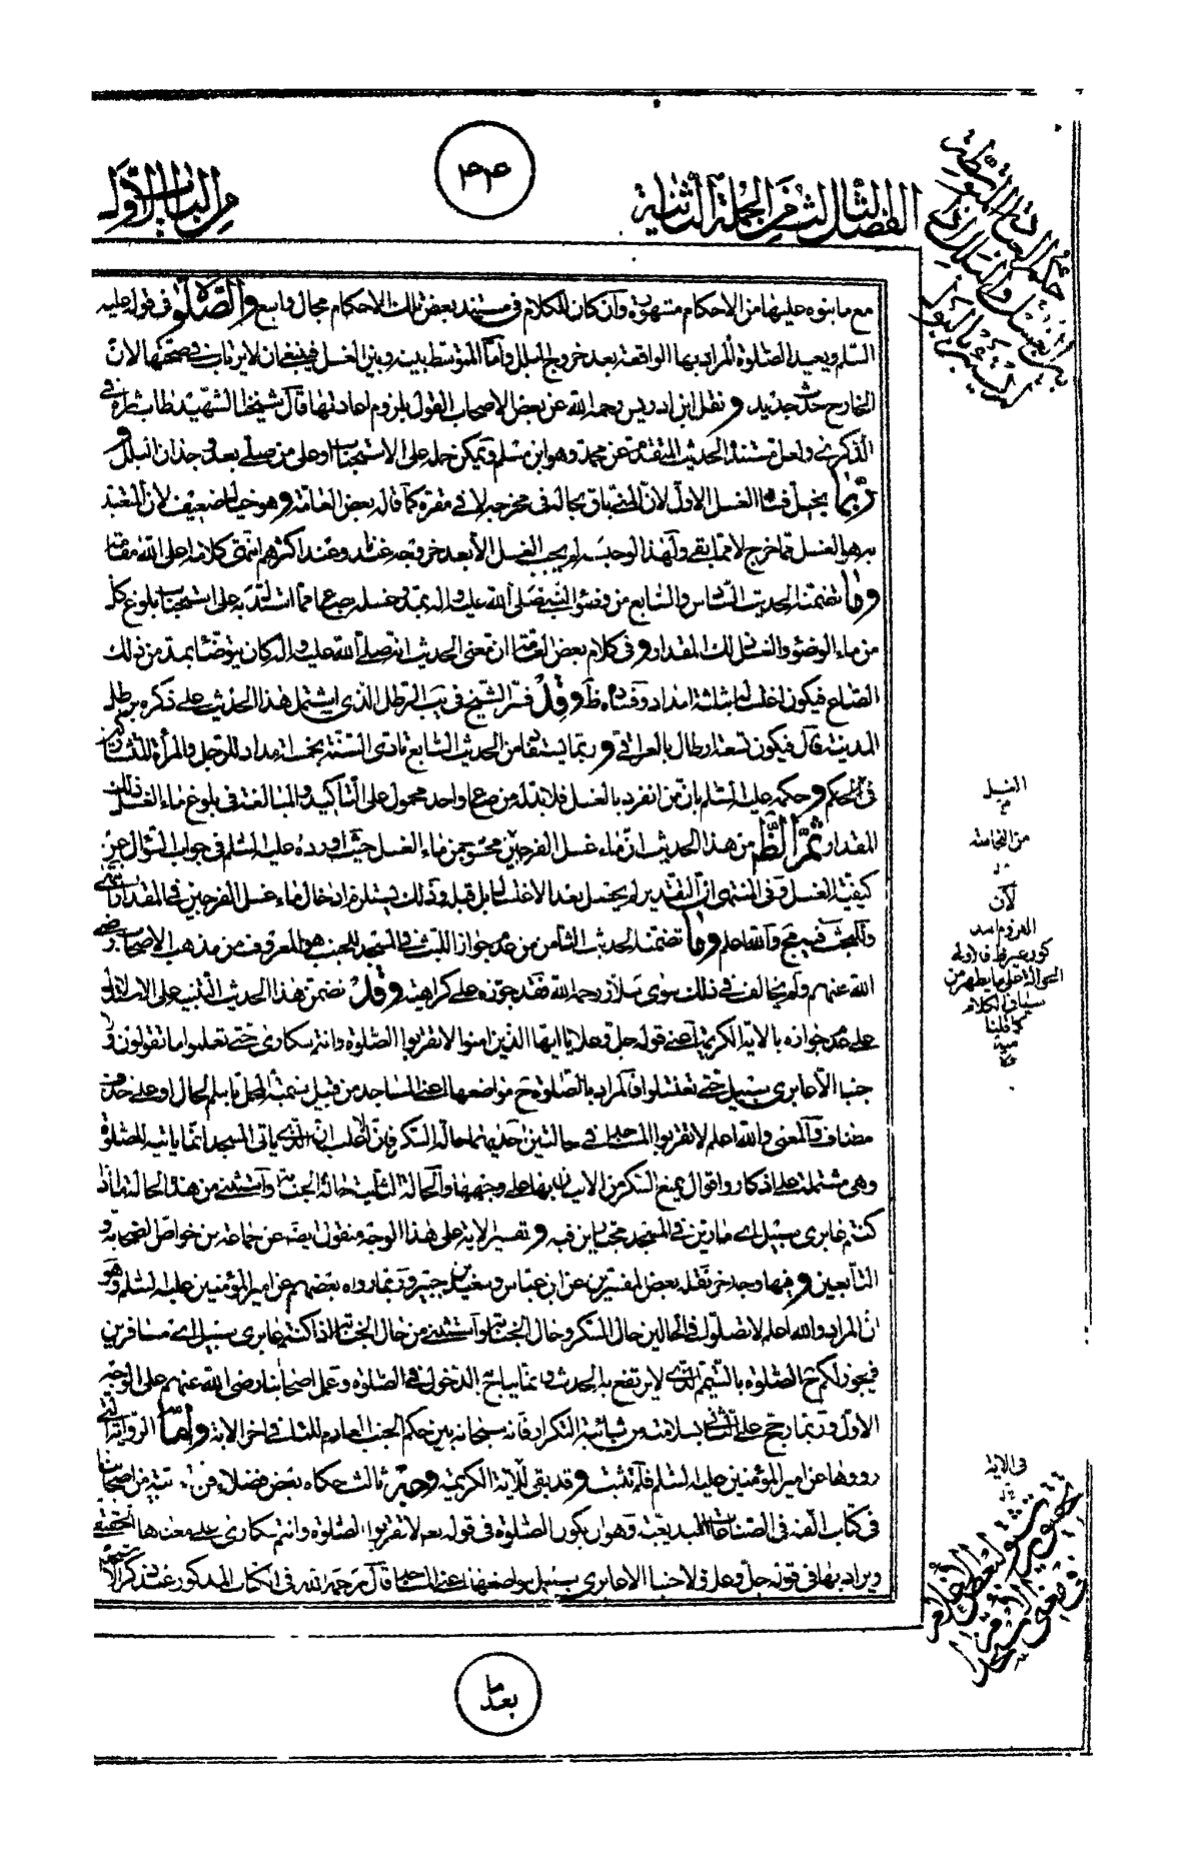 الفصل الثالث من الجملة الثانية
۴۴
من الباب الأول
مع ما بنوه عليها من الاحكام مشهورة وان كان للكلام في مستند بعض تلك الاحكام مجال واسع والصلوة في قوله عليه
السلم ويعيد الصلوة المراد بها الواقعة بعد خروج البلل واما المتوسط بينه وبين الغسل فينبغي ان لا يرتاب في صحتها لان
الخارج حدث جديد ونقل ابن ادريس رحمه الله عن بعض الاصحاب القول بلزوم اعادتها قال شيخنا الشهيد طاب ثراه في
الذكرى ولعل مستنده الحديث المتقدم عن محمد وهو ابن مسلم ويمكن حمله على الاستحباب او على من صلى بعد وجدان البلل و
ربما يخيل فساد الغسل الاول لان المني باق بحاله في مخرجه لا في مقره كما قاله بعض العامة وهو خيال ضعيف لان المتعبد
به هو الغسل مما خرج لا مما بقي ولهذا لو حبسه لم يجب الغسل الا بعد خروجه عندنا وعند اكثرهم انتهى كلامه اعلى الله مقامه
وما تضمنه الحديث السادس والسابع من وضوء النبي صلى الله عليه واله بمد وغسله بصاع مما استدل به على استحباب بلوغ كل
من ماء الوضوء والغسل ذلك المقدار وفي كلام بعض العامة ان معنى الحديث انه صلى الله عليه واله كان يتوضأ بمد من ذلك
الصاع فيكون اغتساله بثلثة امداد وفساده ظ وقد فسر الشيخ في يب الرطل الذي اشتمل هذا الحديث على ذكره برطل
المدينة قال فيكون تسعة ارطال بالعراقي وربما يستفاد من الحديث السابع تادي السنة بخمسة امداد للرجل والمرأة اذا تشاركا
في الحكم وحكمه عليه السلم بان من انفرد بالغسل فلا بد له من صاع واحد محمول على التأكيد والمبالغة في بلوغ ماء الغسل ذلك
المقدار ثم الظ من هذا الحديث ان ماء غسل الفرجين محسوب من ماء الغسل حيث اورده عليه السلم في جواب السؤال عن
كيفية الغسل وفي المنتهى ان التقدير لم يحصل بعد الاغتسال بل قبله وذلك يستلزم ادخال ماء غسل الفرجين في المقدار
والبحث فيه مج والله اعلم وما تضمنه الحديث الثامن من عدم جواز اللبث في المسجد للجنب هو المعروف من مذهب الاصحاب رضي
الله عنهم ولم يخالف في ذلك سوى سلار رحمه الله فقد جوزه على كراهية وقد تضمن هذا الحديث التنبيه على الاستدلال
على عدم جوازه بالاية الكريمة اعني قوله جل وعلا يا ايها الذين امنوا لا تقربوا الصلوة وانتم سكارى حتى تعلموا ما تقولون ولا
جنبا الا عابري سبيل حتى تغتسلوا فالمراد بالصلوة ح مواضعها اعني المساجد من قبيل تسمية المحل باسم الحال او على حذف
مضاف والمعنى والله اعلم لا تقربوا المساجد في حالتين احديهما حالة السكر فان الاغلب ان الذي ياتي المسجد انما ياتيه للصلوة
وهي مشتملة على اذكار واقوال يمنع السكر من الاتيان بها على وجهها والحالة الثانية حالة الجنابة واستثنى من هذه الحالة ما اذا
كنتم عابري سبيل اي مارين في المسجد مجتازين فيه وتفسير الاية على هذا الوجه منقول ايضا عن جماعة من خواص الصحابة و
التابعين وفيها وجه اخر نقله بعض المفسرين عن ابن عباس وسعيد بن جبير وربما رواه بعضهم عن امير المؤمنين عليه السلم وهو
ان المراد والله اعلم لا تصلوا في الحالين حال السكر وحال الجنابة واستثنى من حال الجنابة اذا كنتم عابري سبيل اي مسافرين
فيجوز لكم ح الصلوة بالتيمم الذي لا يرتفع به الحدث وانما يباح به الدخول في الصلوة وعمل اصحابنا رضي الله عنهم على الوجه
الاول وربما رجح على الثاني بسلامته من شائبة التكرار فانه سبحانه بين حكم الجنب العادم للماء في اخر الاية واما الرواية التي
رووها عن امير المؤمنين عليه السلم فلم تثبت وقد بقي للاية الكريمة وجه ثالث حكاه بعض فضلاء فن من اصحابنا
في كتاب الفه في الصناعات البديعية وهو ان يكون الصلوة في قوله تعم لا تقربوا الصلوة وانتم سكارى على معناها الحقيقي
ويراد بها في قوله جل وعلا ولا جنبا الا عابري سبيل مواضعها اعني المساجد قال رحمه الله في الكتاب المذكور عند ذكر
بعد ما
الغسل
من الجنابة
لان
سياق الكلام
كما قلنا
منه
في الاية